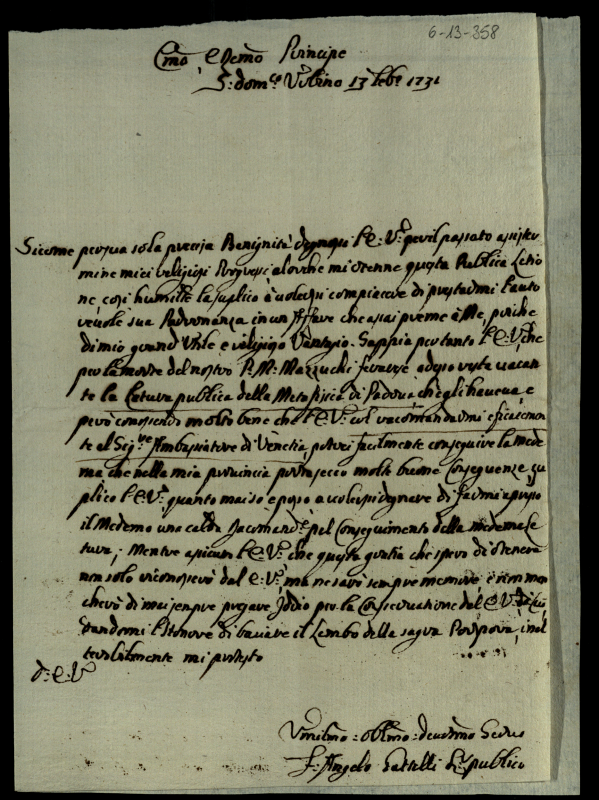 6-13-358
Emo e Remo Principe
S: Dom:co Urbino 13 febo 1731
Sicome per sua sola precisa Benignità degnossi l'E: Va per il passato assister
mi ne miei religiosi Progressi alorche mi ottenne questa Publica Letio
ne così humilte la suplico à volersi compiacere di prestarmi l'auto
revole sua Padronanza in un Affare che assai preme à Me, perche
di mio grand' Utile e religioso Vantagio. Sappia pertanto l'E: Va che
per la morte del nostro P. M: Mazzuchi Ferarese adesso resta vacan
te la Letura publica della Metafisica di Padova ch'egli haveva, e
però conoscendo molto bene che l'E: Va col racomandarmi eficacemen
te al Sigre Ambasciatore di Venetia, poterei facilmente conseguire la mede
ma che nella mia provincia porta secco molte buone conseguenze, su
plico l'E: Va quanto mai so e posso a volersi degnare di farmi apresso
il Medemo una calda Racomande pel Conseguimento della medema Le
tura; Mentre asicuro l'E: Va che questa gratia che spero di ottenere
non solo riconoscerò dal E: Va, ma ne sarò sempre memore, e non man
cherò di mai sempre pregare Iddio per la Conservatione del E: Va
dandomi l'Honore di baciare il Lembo della sagra Porpora, inal
terabilmente mi protesto
D: E: V
Umilmo: oblmo: devotmo Servo
Fr: Angelo publico